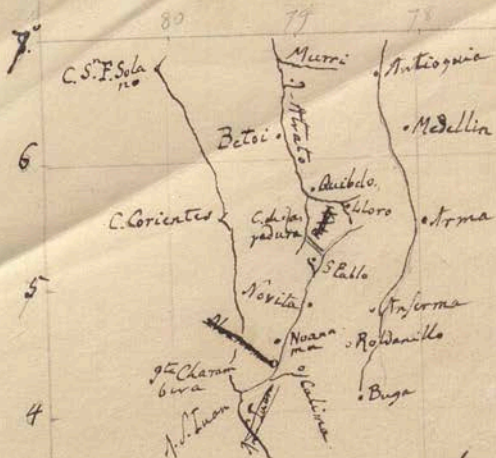 80 79 78
7.°
C. Sn. F. Sola
no
Murri
Antioquia
R. Atrato
Betoi
Medellin
6
Quibdo.
Lloro
C. Corientes
C. de las
padura
Arma
S. Pablo
5
Novita
Anserma
Noana
ma
Roldanillo
Charam
bira
Calima
Buga
4
R. S. Iuan